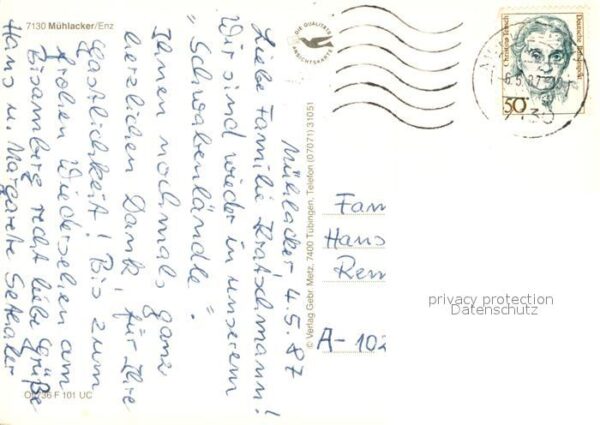 7130 Mühlacker/Enz
DIE QUALITÄTS
ANSICHTSKARTE
Christine Teusch
Deutsche Bundespost
50
Mühlacker 4.5.87
Liebe Familie Kratschmann!
Wir sind wieder in unserem
"Schwabenländle".
Ihnen nochmals ganz
herzlichen Dank, für Ihre
Gastlichkeit! Bis zum
frohen Wiedersehen am
Bisamberg recht liebe Grüße
Hans u. Margarete
© Verlag Gebr. Metz, 7400 Tübingen, Telefon (07071) 31051
Fam
Hans
Ren
A-102
privacy protection
Datenschutz
F 101 UC